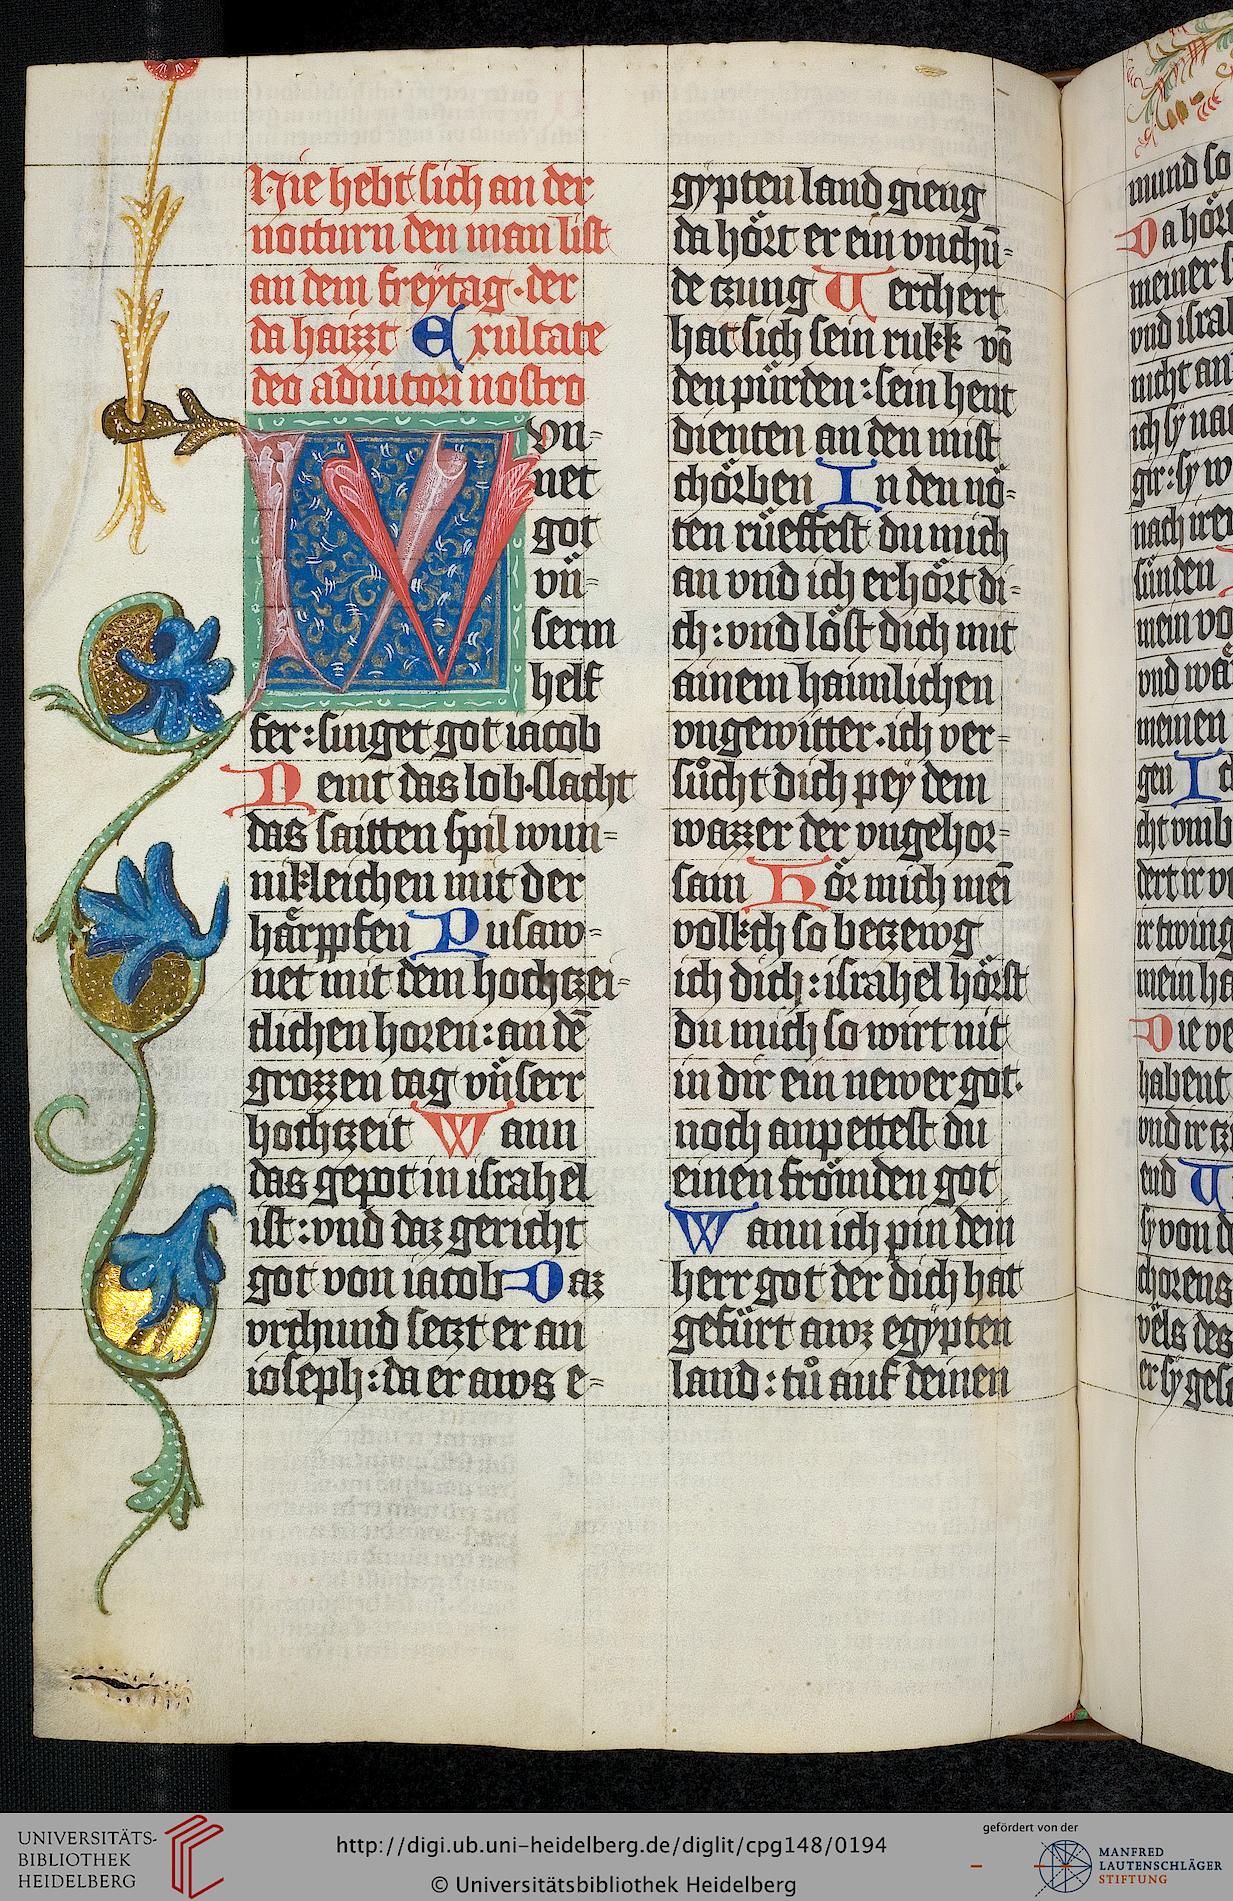 Hie hebt sich an der
nocturn den man list
an dem freÿtag · der
da haizzt Exultate
deo adiutori nostro
Wun-
net
got
vn̈-
serm
helf
fer : singet got iacob
Nemt das lob · slacht
das saitten spil wun-
nikleichen mit der
härpfen Pusaw-
net mit dem hochtzei-
tlichen horen : an dē
grozzen tag vnserr
hochtzeit Wann
das gepot in israhel
ist : vnd daz gericht
got von iacob Daz
vrchund setzt er an
ioseph : da er aws e-
gÿpten land gieng
da hört er ein vnchū-
de tzung Verchert
hat sich sein rukk vō
den pürden : sein hent
dienten an den mist
chörben In den nö-
ten rüeffest du mich
an vnd ich erhört di-
ch : vnd löst dich mit
ainem haimlichen
vngewitter · ich ver-
sůcht dich peÿ dem
wazzer der vngehor-
sam Hör mich mei̅
volkch so betzewg
ich dich : israhel hörst
du mich so wirt nit
in dir ein newer got ·
noch anpettest du
einen frömden got
Wann ich pin dein
herr got der dich hat
gefürt awz egÿpten
land : tů auf deinen
mund so
Da hört
meiner
vnd isral
nicht an
ich sÿ na
gir : sÿ w
nach iren
sünden
mein vo
vnd wä
meinen
gen Ic
cht vmb
dert ir v
ir twing
mein ha
Die ve
habent
vnd ir tz
end V
sÿ von d
chorens
vels des
er sÿ gesa
UNIVERSITÄTS-
BIBLIOTHEK
HEIDELBERG
http://digi.ub.uni-heidelberg.de/diglit/cpg148/0194
© Universitätsbibliothek Heidelberg
gefördert von der
MANFRED
LAUTENSCHLÄGER
STIFTUNG